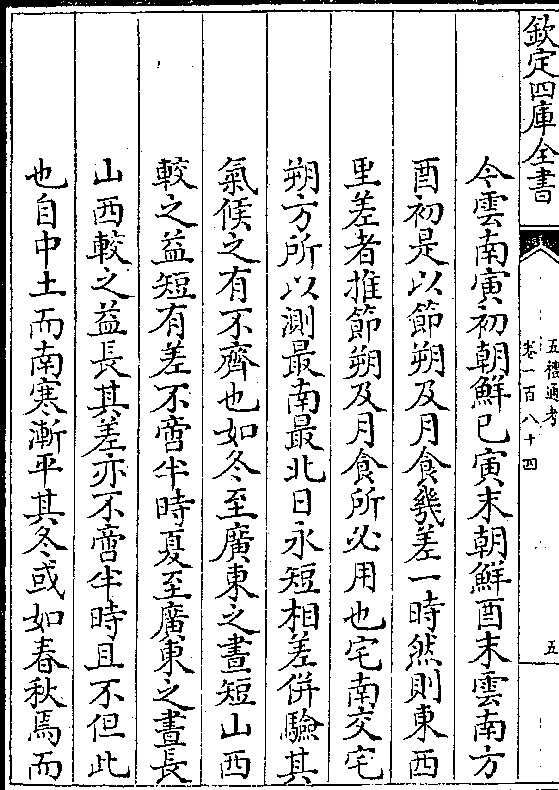 欽定四庫全書
五禮通考
卷一百八十四
五
今雲南寅初朝鮮已寅末朝鮮酉末雲南方
酉初是以節朔及月食㡬差一時然則東西
里差者推節朔及月食所必用也宅南交宅
朔方所以測最南最北日永短相差併驗其
氣候之有不齊也如冬至廣東之晝短山西
較之益短有差不啻半時夏至廣東之晝長
山西較之益長其差亦不啻半時且不但此
也自中土而南寒漸平其冬或如春秋焉而